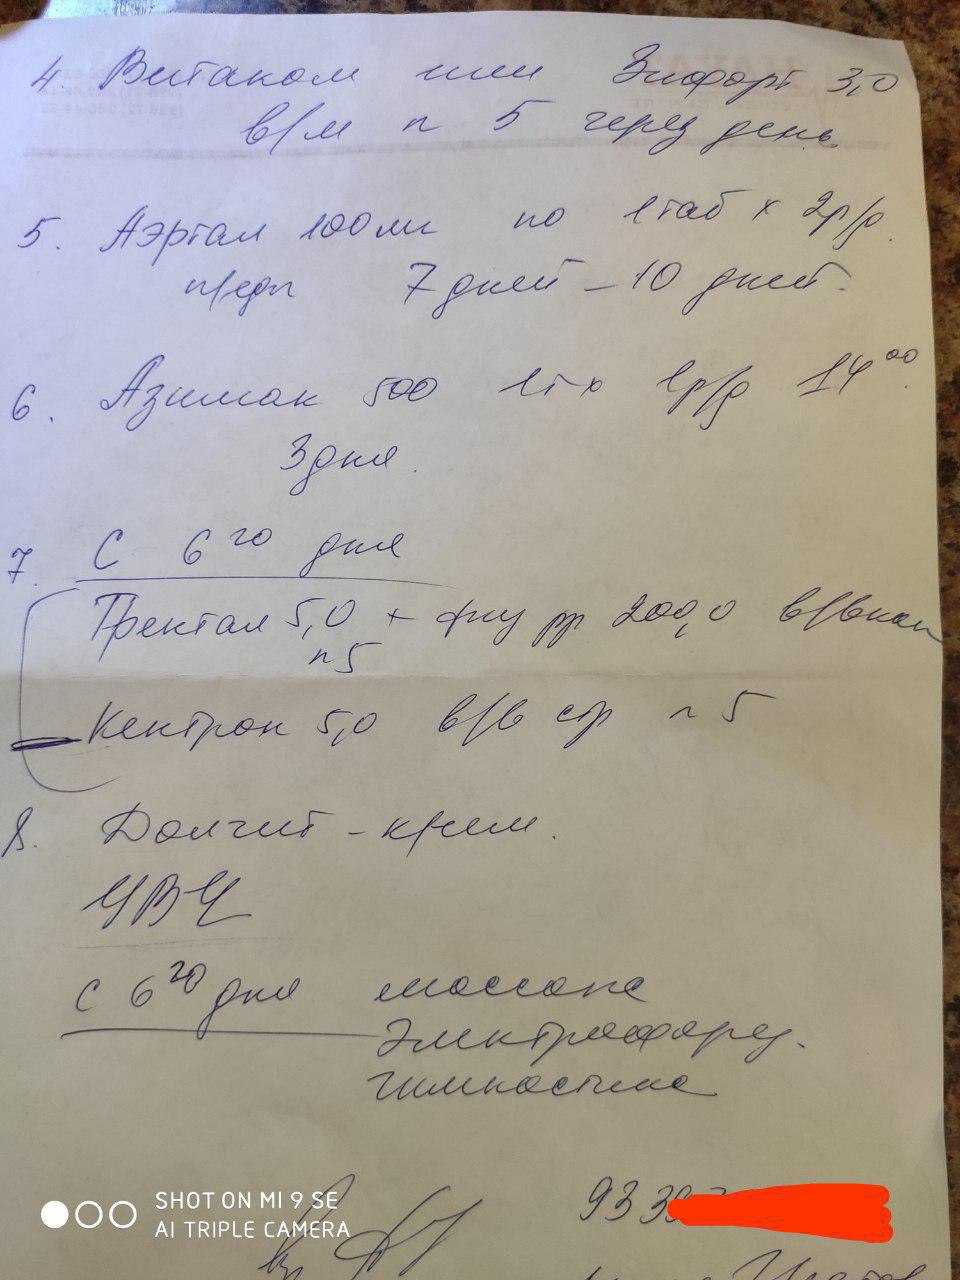 4. Витаком или Зифорт 3,0
в/м n 5 через день
5. Аэртал 100 мг по 1 таб х 2р/д.
п/еды 7 дней – 10 дней.
6. Азимак 500 1т х 1р/д 14⁰⁰.
3 дня.
7. С 6го дня
Трентал 5,0 + физ рр 200,0 в/в кап
n 5
Кентрон 5,0 в/в стр n 5
8. Долгит – крем.
УВЧ
с 6го дня массаж
Электрофорез.
гимнастика
SHOT ON MI 9 SE
AI TRIPLE CAMERA
93